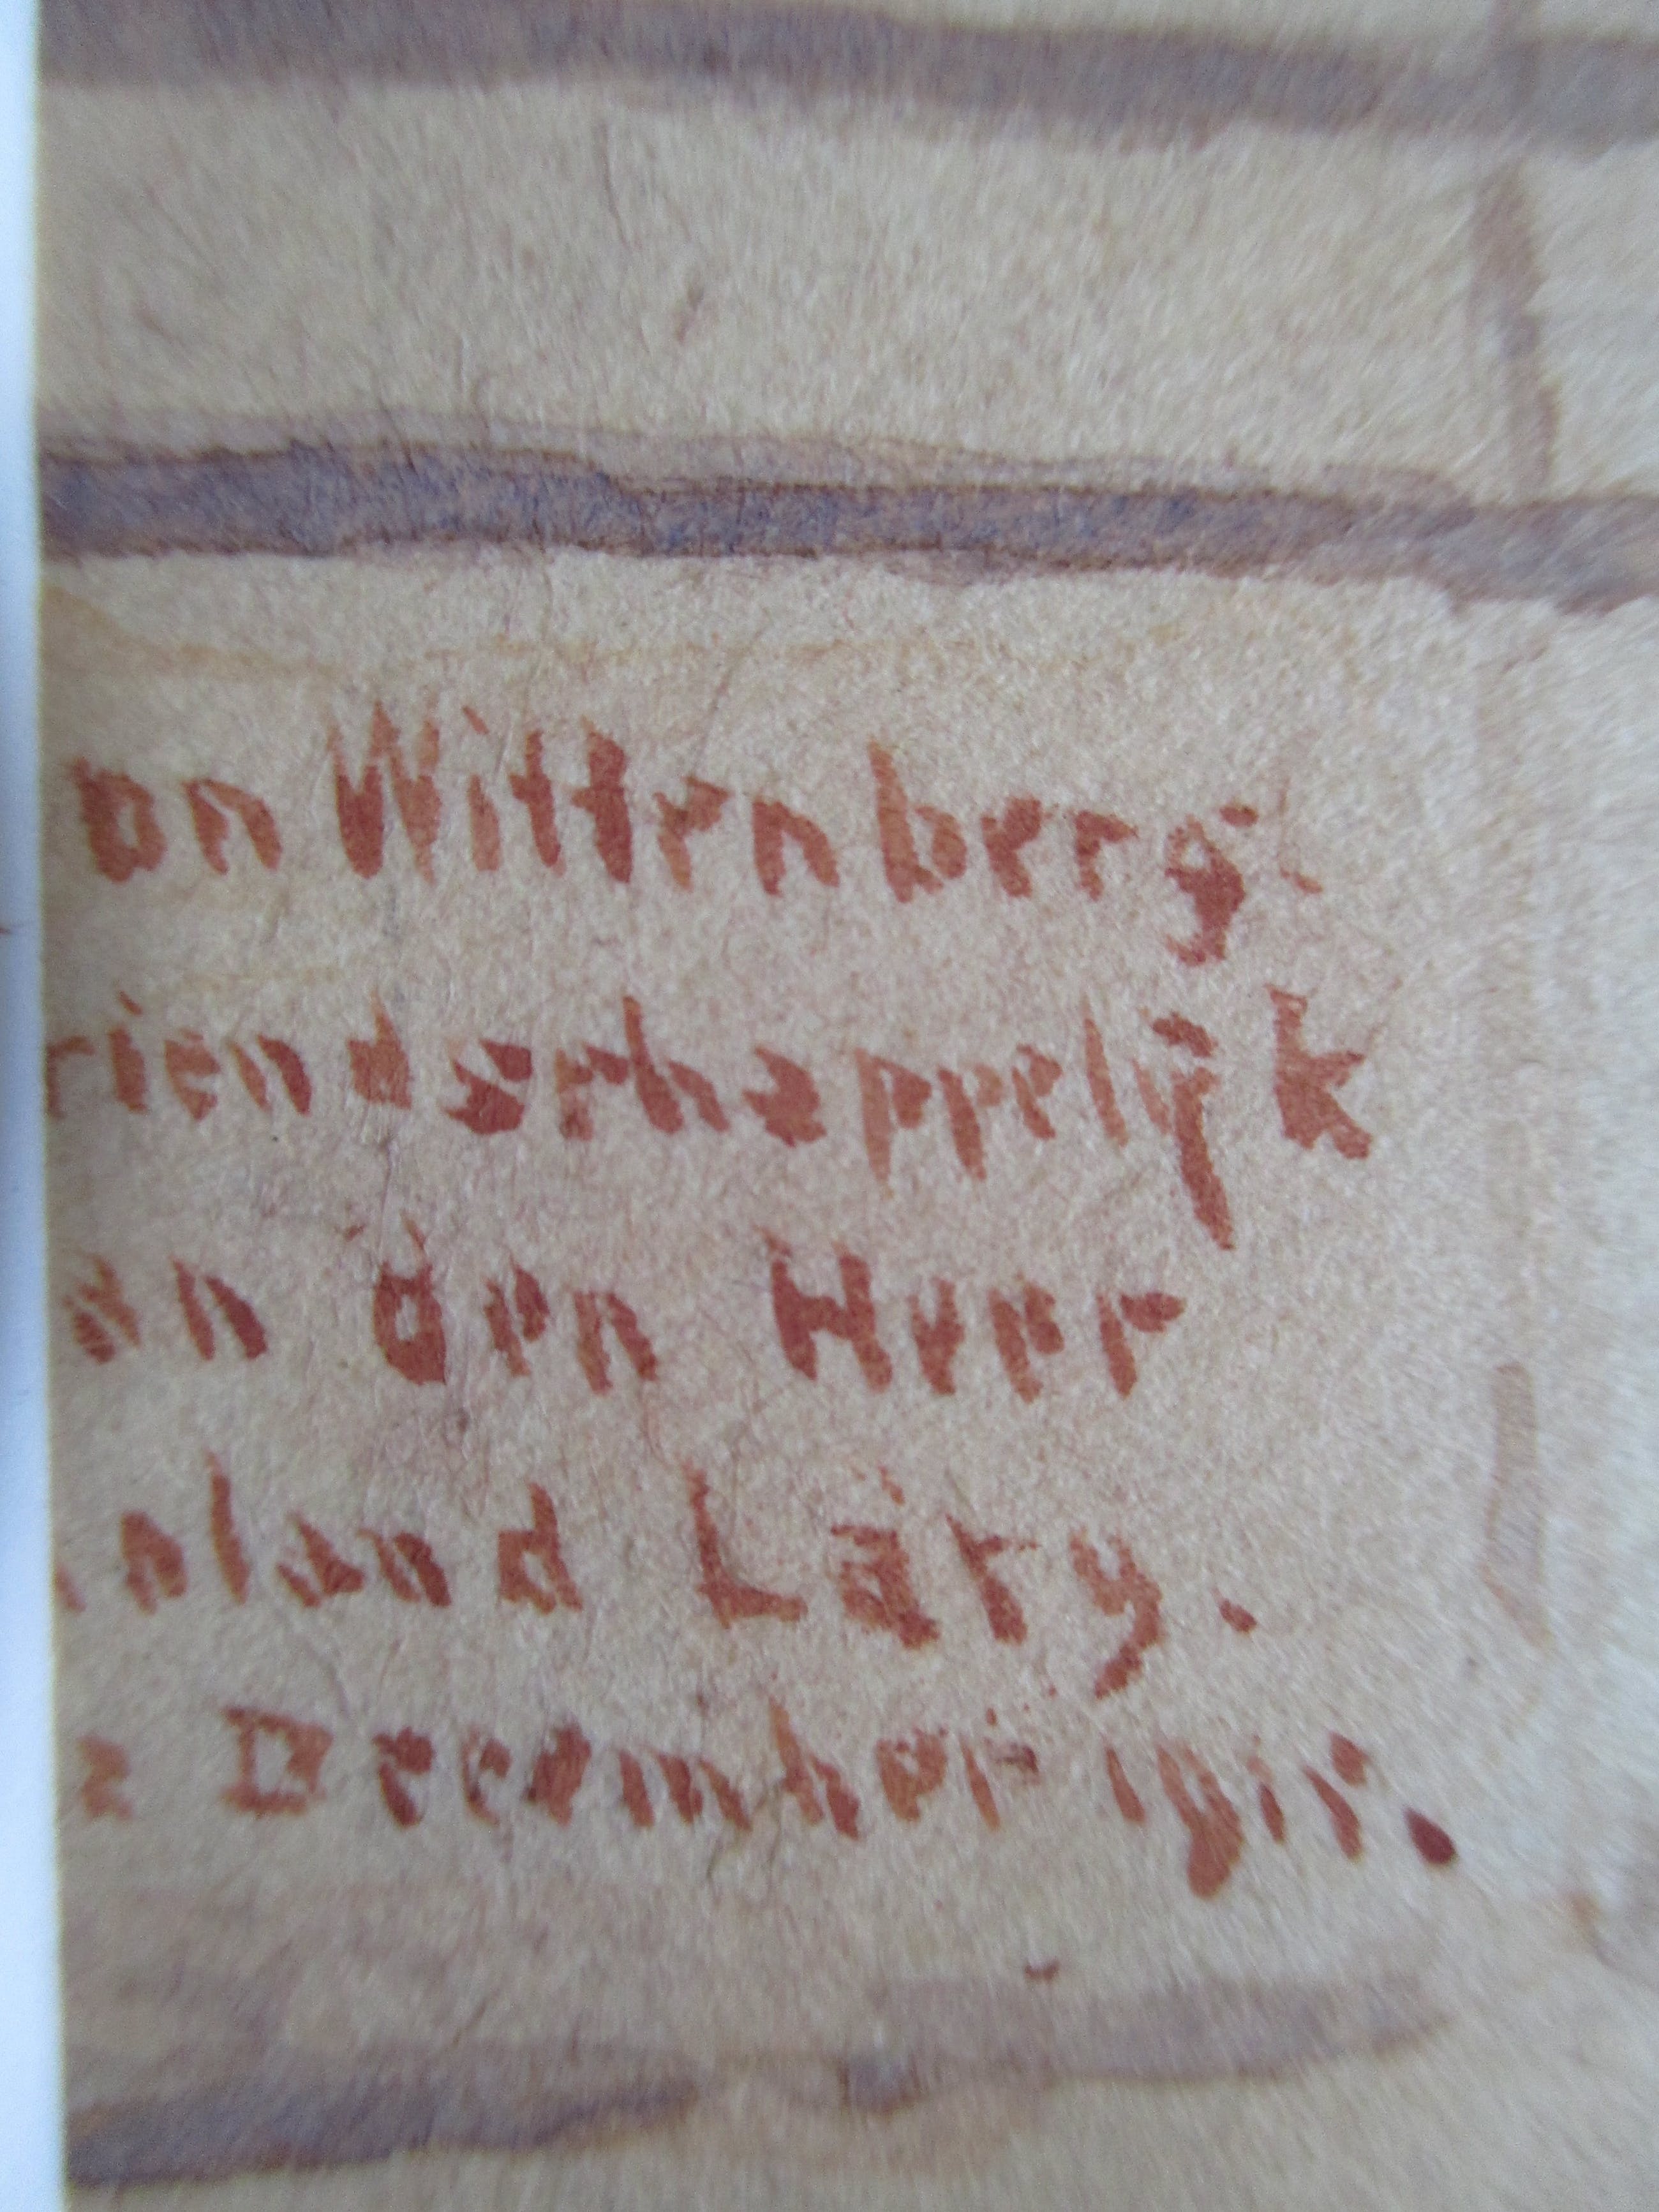 on Wittenberg.
riendschappelijk
an den Heer
oland Läry.
2 December 1915.